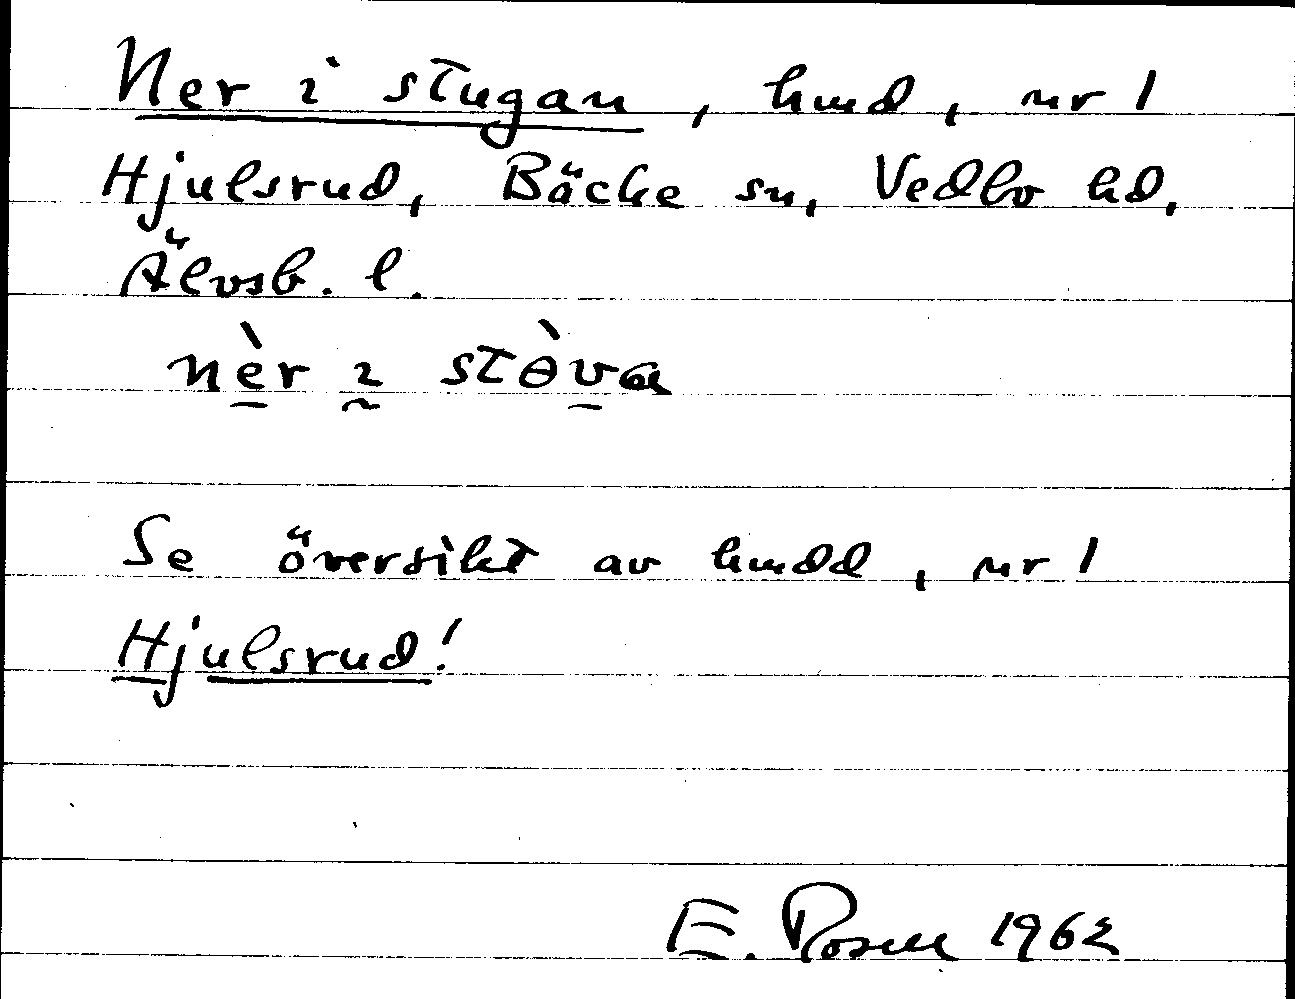 Ner i stugan, hmd, nr 1
Hjulsrud, Bäcke sn, Vedbo hd,
Älvsb. l.
nèr ı stθ̀va
Se översikt av hmdd, nr 1
Hjulsrud!
E. Rosell 1962